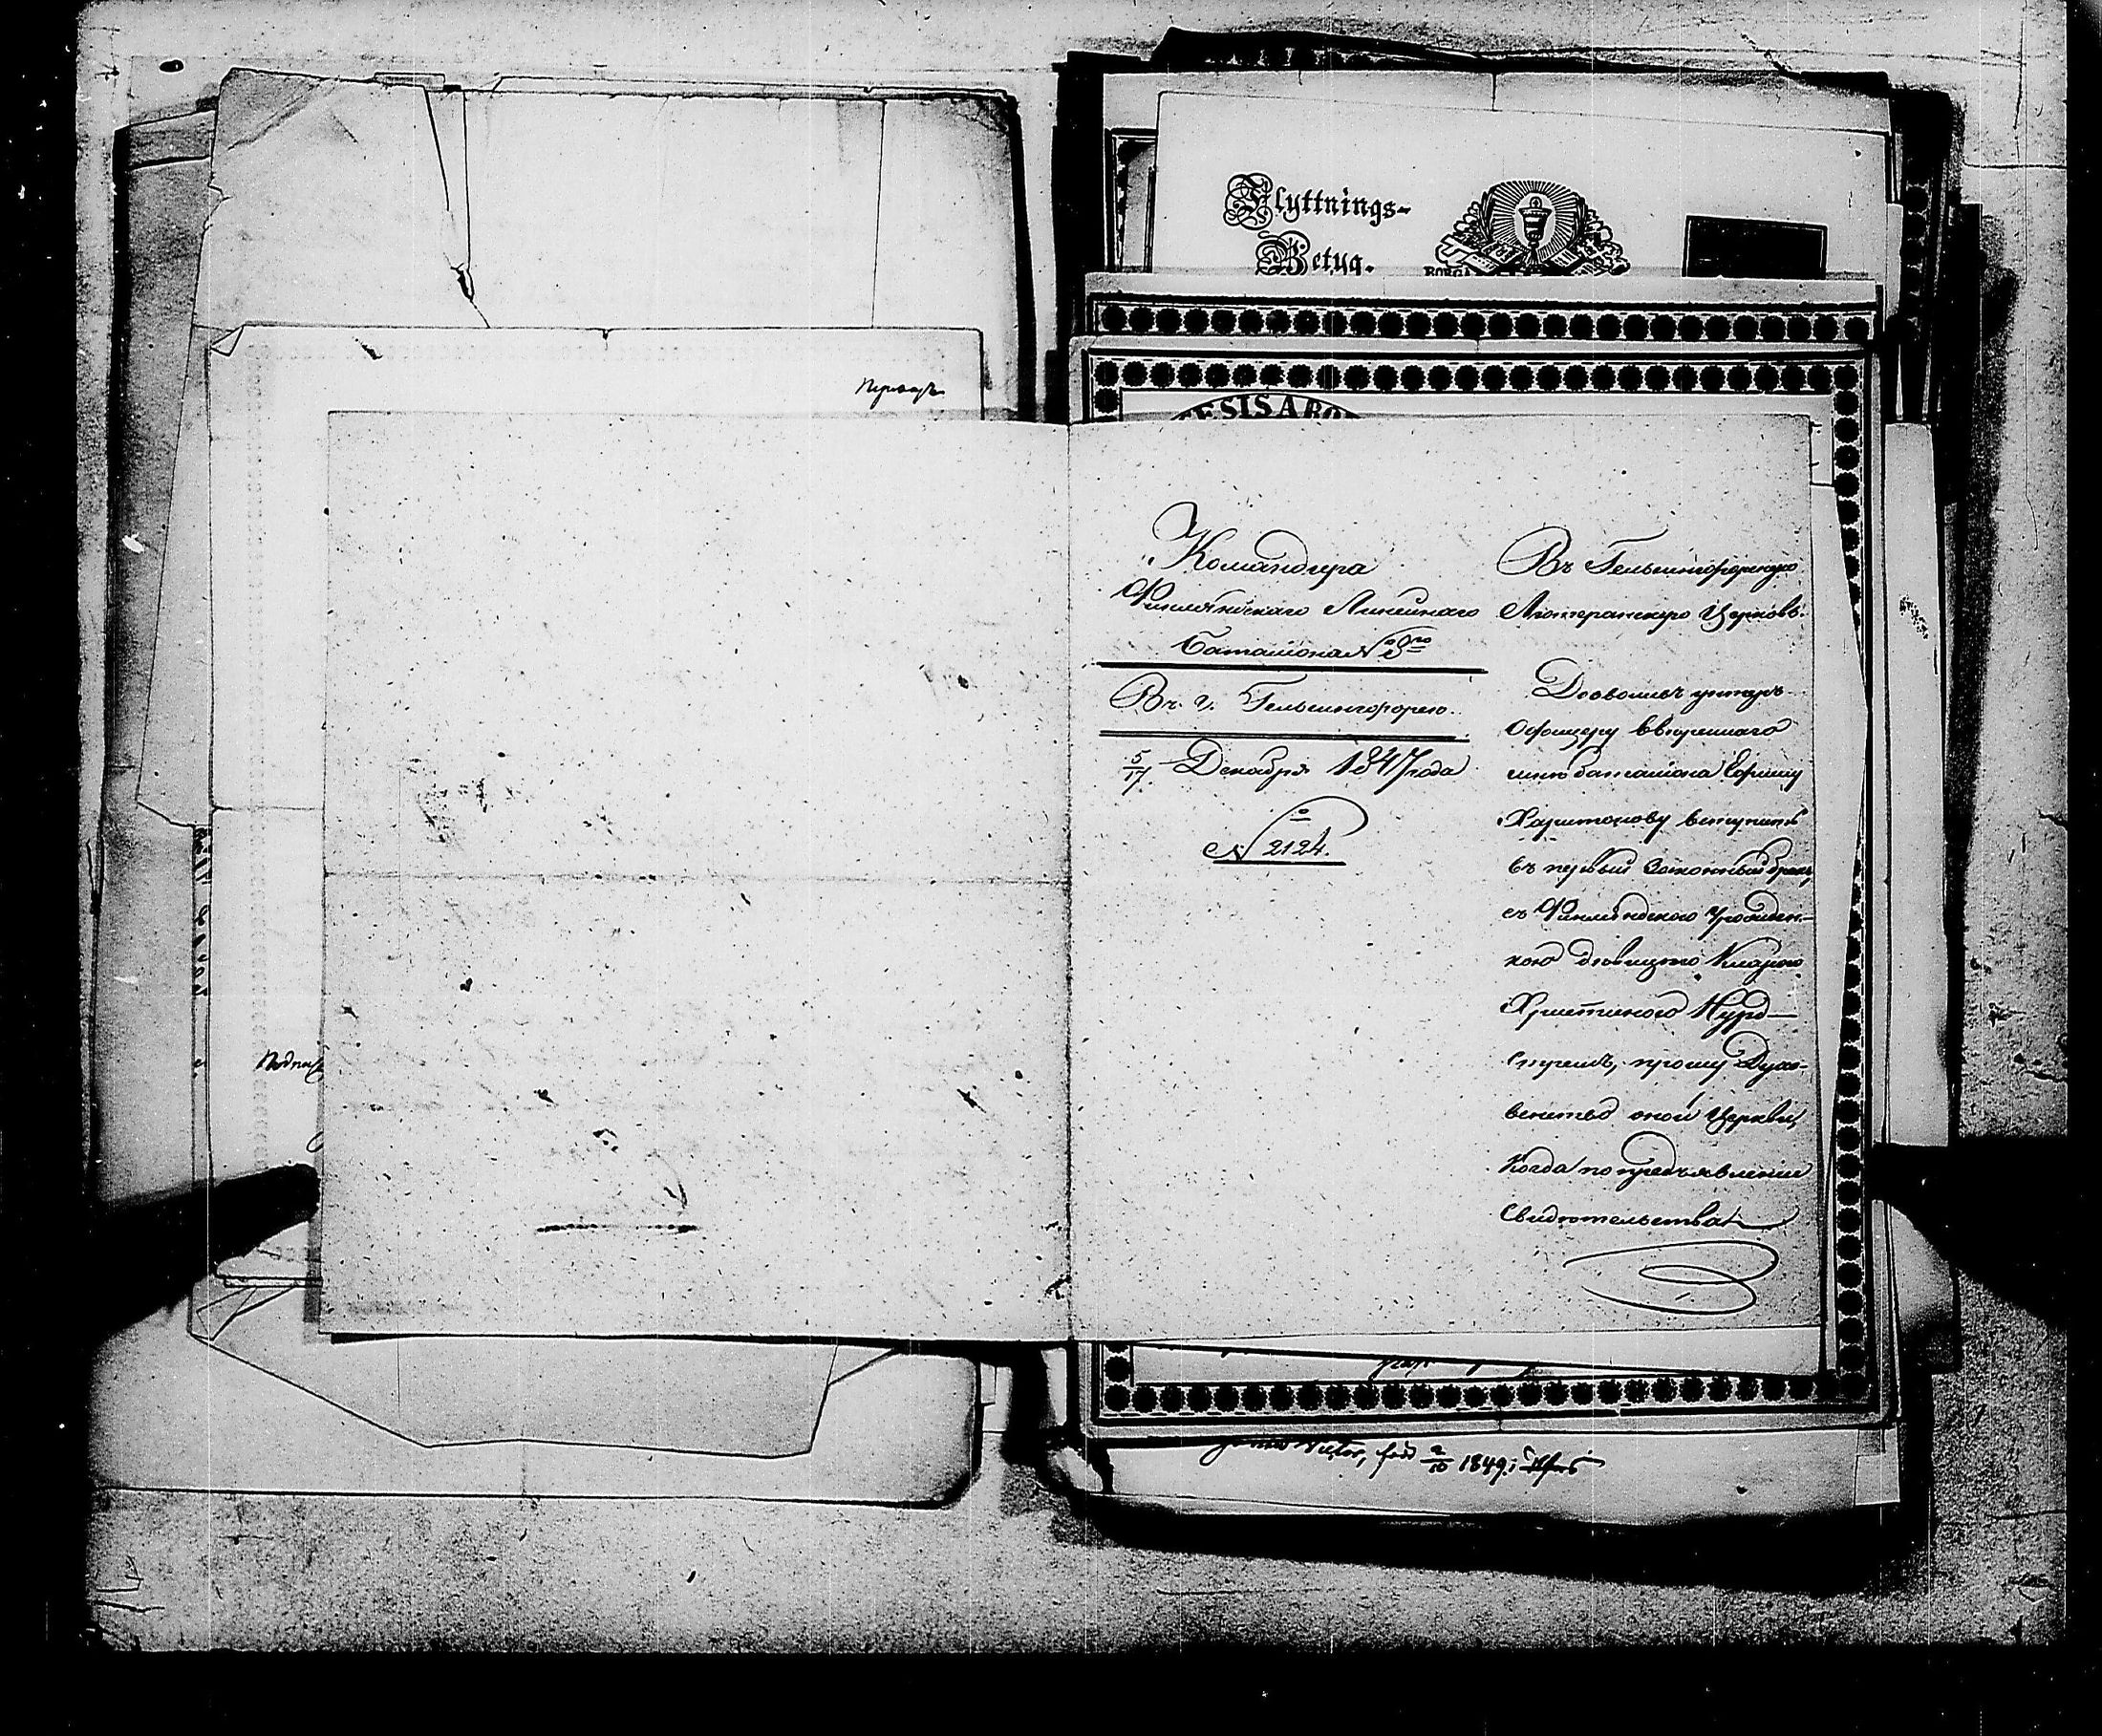 Flyttnings-
Betyg.
BORGÅ
Переводъ
Подпис
Командира
Финляндскаго Линейнаго
Баталіона № 3го
Въ г. Гельсингфорсѣ.
5/17 Декабря 1847 года
№ 2124.
Въ Гельсингфорскую
Лютеранскую Церковь.
Дозволивъ унтеръ-
Офицеру ввѣреннаго
мнѣ баталіона Ефиму
Харитонову вступить
въ первый Законный бракъ,
съ Финляндскою Урожден-
кою дѣвицею Кларою
Христиною Нурд-
стремъ, прошу Духо-
венство оной Церкви,
Когда по предъявленіи
Свидѣтельства
Victor, född 2/10 1849;